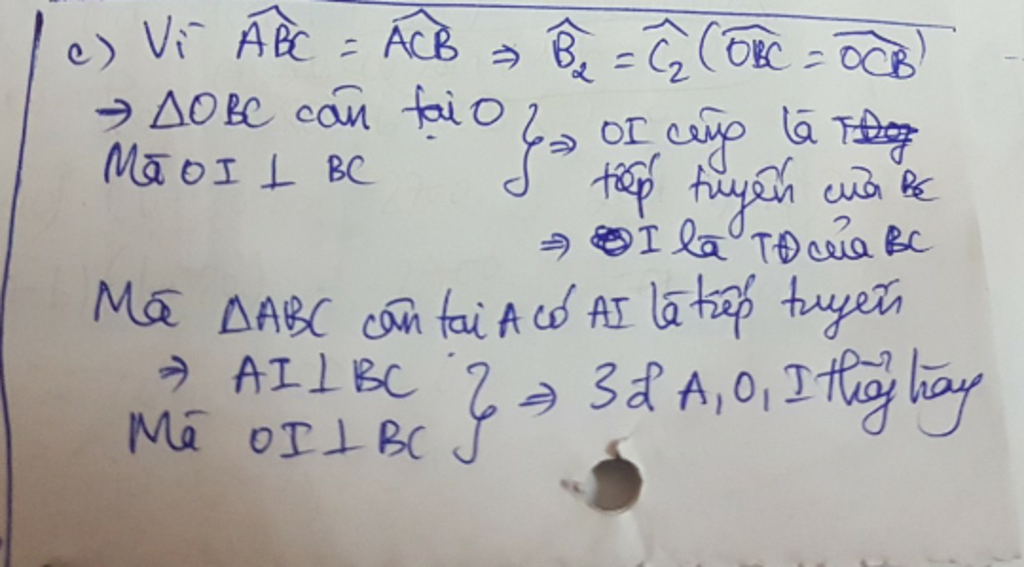 c) Vì ABC = ACB ⇒ B₂ = C₂ (OBC = OCB)
→ ΔOBC cân tại O
Mà OI ⊥ BC
} ⇒ OI cũng là
tiếp tuyến của BC
⇒ I là TĐ của BC
Mà ΔABC cân tại A có AI là tiếp tuyến
⇒ AI ⊥ BC
Mà OI ⊥ BC
} ⇒ 3đ A, O, I thẳng hàng